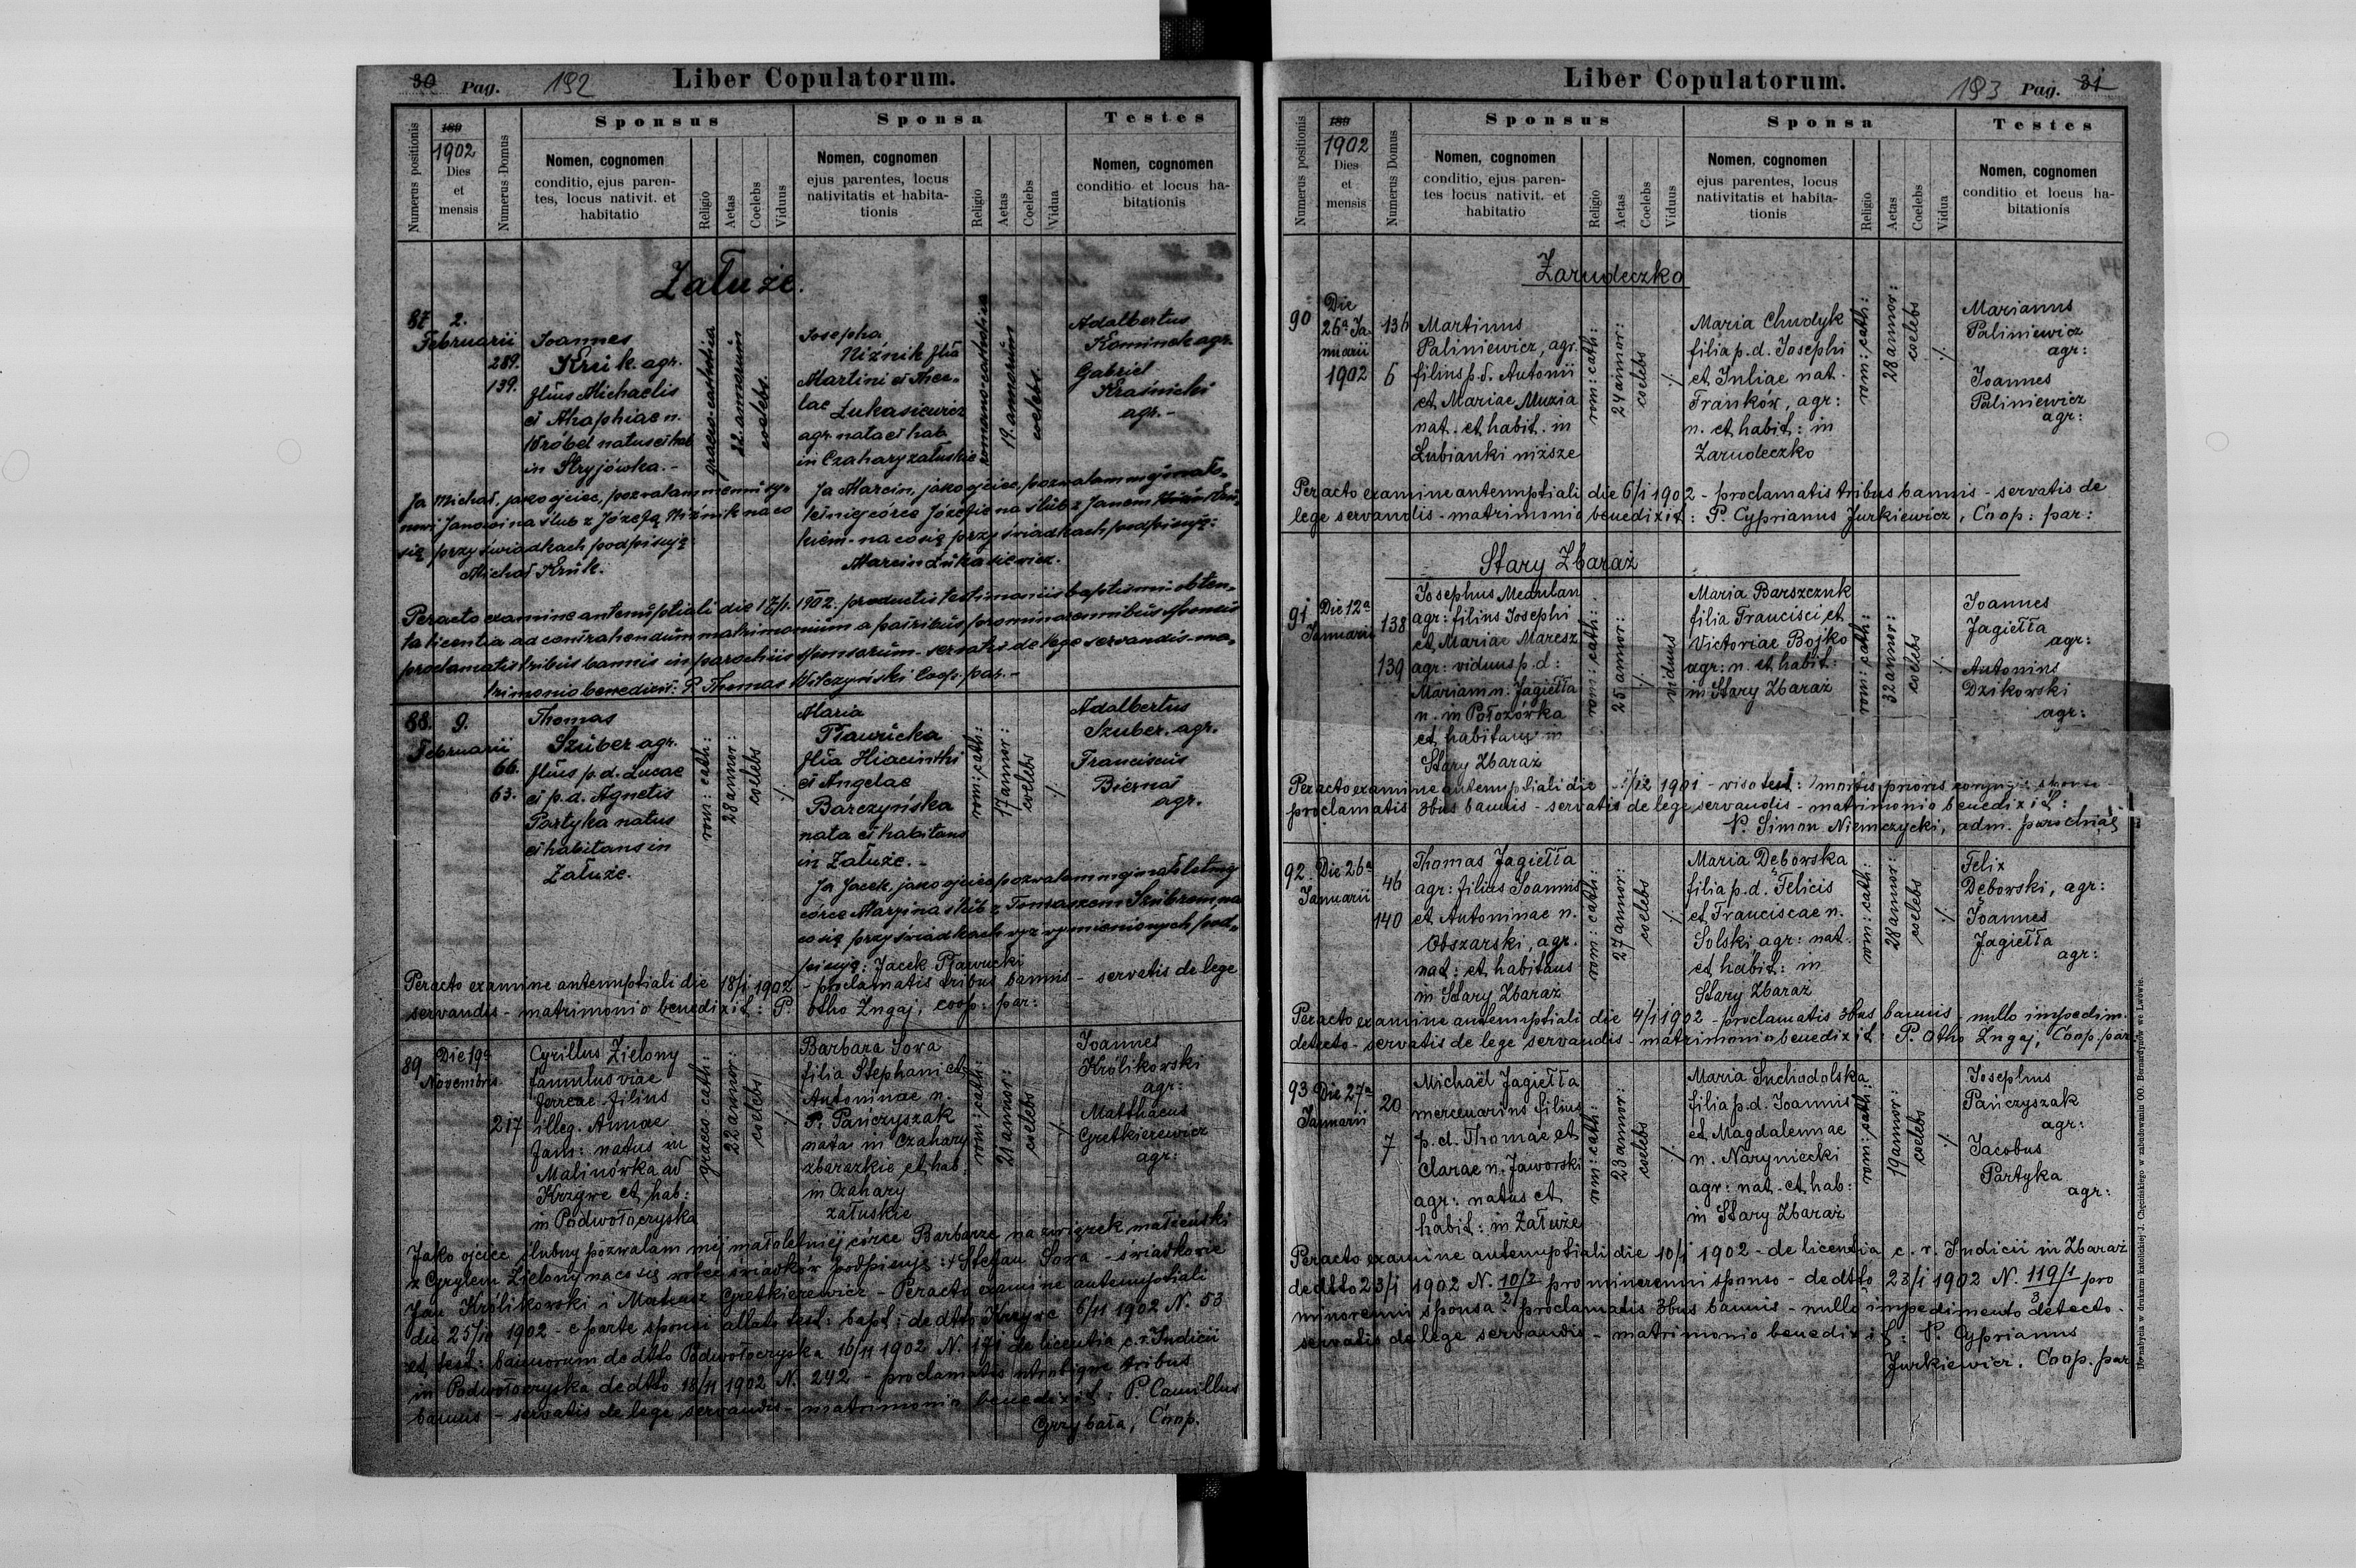 30 Pag. 192 Liber Copulatorum.
Numerus positionis
189
1902
Dies
et
mensis
Numerus Domus
Sponsus
Nomen, cognomen
conditio, ejus paren-
tes, locus nativit. et
habitatio
Religio
Aetas
Coelebs
Viduus
Sponsa
Nomen, cognomen
ejus parentes, locus
nativitatis et habita-
tionis
Religio
Aetas
Coelebs
Vidua
Testes
Nomen, cognomen
conditio et locus ha-
bitationis
Załuże.
87
2.
Februarii
289.
139.
Joannes
Kruk agr.
filius Michaelis
et Ahaphiae n.
Wróbel natus et hab.
in Stryjówka.-
graeco-catholica
22. annorum
coelebs.
Josepha
Niźnik filia
Martini et Thec-
lae Łukasiewicz
agr. nata et hab.
in Czahary załuskie
romano-catholica
19. annorum
coelebs.
Adalbertus
Kominek agr.
Gabriel
Kraśnicki
agr.-
Ja Michał, jako ojciec, pozwalam memu sy-
nowi Janowi na ślub z Józefą Niźnik na co
się przy świadkach podpisuję:
Michał Kruk.
Ja Marcin, jako ojciec, pozwalam mej mało-
letniej córce Józefie na ślub z Janem
kiem - na co się przy świadkach podpisuję:
Marcin Łukasiewicz.
Peracto examine antenuptiali die 17/1. 1902. productis testimoniis baptismi obten-
ta licentia ad contrahendum matrimonium a patribus pro minorennibus sponsis
proclamatis tribus bannis in parochiis sponsorum - servatis de lege servandis - ma-
trimonio benedixit: P. Thomas Wilczyński Coop. par.-
88.
9.
Februarii
66.
63.
Thomas
Szuber agr.
filius p.d. Lucae
et p.d. Agnetis
Partyka natus
et habitans in
Załuże.
rom: cath:
28 annor:
coelebs
Maria
Pławucka
filia Hiacinthi
et Angelae
Barczyńska
nata et habitans
in Załuże.-
rom: cath:
17 annor:
coelebs
Adalbertus
Szuber. agr.
Franciscus
Biernat
agr.
Ja Jacek, jako ojciec pozwalam mej małoletniej
córce Maryi na ślub z Tomaszem Szubrem, na
co się przy świadkach wyż wymienionych pod-
pisuję: Jacek Pławucki
Peracto examine antenuptiali die 18/1 1902 - proclamatis tribus bannis - servatis de lege
servandis - matrimonio benedixit: P. Otho Zngaj, coop: par:
89
Die 19a
Novembris
217
Cyrillus Zielony
famulus viae
ferreae filius
illeg. Annae
fam: natus in
Malinówka ad
Krzywe et hab:
in Podwołoczyska
graeco cath:
22 annor:
coelebs
Barbara Sowa
filia Stephani et
Antoninae n.
P. Pańczyszak
nata in Czahary
zbarazkie et hab.
in Czahary
załuskie
rom: cath:
21 annor:
coelebs
Joannes
Królikowski
agr:
Matthaeus
Gretkierewicz
agr:
Jako ojciec ślubny pozwalam mej małoletniej córce Barbarze na związek małżeński
z Cyrylem Zielony na co się wobec świadków podpisuję: + Stefan Sowa - świadkowie
Jan Królikowski i Mateusz Gretkierewicz - Peracto examine antenuptiali
die 25/10 1902 - e parte sponsi allato test: bapt: de dtto Krzywe 6/11 1902 N. 53
et test: bannorum de dtto Podwołoczyska 16/11 1902 N. 171 de licentia c. r. Judicii
in Podwołoczyska de dtto 18/11 1902 N. 242 - proclamatis utrobique tribus
bannis - servatis de lege servandis - matrimonio benedixit: P. Camillus
Grzybała, Coop.
Liber Copulatorum. 193 Pag. 31
Numerus positionis
189
1902
Dies
et
mensis
Numerus Domus
Sponsus
Nomen, cognomen
conditio, ejus paren-
tes locus nativit. et
habitatio
Religio
Aetas
Coelebs
Viduus
Sponsa
Nomen, cognomen
ejus parentes, locus
nativitatis et habita-
tionis
Religio
Aetas
Coelebs
Vidua
Testes
Nomen, cognomen
conditio et locus ha-
bitationis
Zarudeczko
90
Die
26a Ja-
nuarii
1902
136
6
Martinus
Paliniewicz, agr.
filius p.d. Antonii
et Mariae Muzia
nat. et habit. in
Łubianki niższe
rom: cath:
24 annor:
coelebs
Maria Chudyk
filia p.d. Josephi
et Juliae nat.
Franków, agr:
n. et habit: in
Zarudeczko
rom: cath:
28 annor:
coelebs
Marianus
Paliniewicz
agr:
Joannes
Paliniewicz
agr:
Peracto examine antenuptiali die 6/1 1902 - proclamatis tribus bannis - servatis de
lege servandis - matrimonio benedixit: P. Cyprianus Jurkiewicz, Coop: par:
Stary Zbaraż
91
Die 12a
Januarii
138
139
Josephus Medulan
agr: filius Josephi
et Mariae Maresz
agr: viduus p.d:
Mariam n. Jagiełła
n. in Połozówka
et habitans in
Stary Zbaraż
rom: cath:
25 annor:
viduus
Maria Barszczuk
filia Francisci et
Victoriae Bojko
agr: n. et habit:
in Stary Zbaraż
rom: cath:
32 annor:
coelebs
Joannes
Jagiełła
agr:
Antonius
Dzikowski
agr:
Peracto examine antenuptiali die 1/12 1901 - viso test: mortis prioris conjugis sponsi -
proclamatis 3bus bannis - servatis de lege servandis - matrimonio benedixit:
P. Simon Niemczycki, adm. parochiae
92.
Die 26a
Januarii
46
140
Thomas Jagiełła
agr: filius Joannis
et Antoninae n.
Obszarski, agr.
nat: et habitans
in Stary Zbaraż
rom: cath:
27 annor:
coelebs
Maria Dębowska
filia p.d. Felicis
et Franciscae n.
Solski agr: nat.
et habit: in
Stary Zbaraż
rom: cath:
28 annor:
coelebs
Felix
Dębowski, agr:
Joannes
Jagiełła
agr:
Peracto examine antenuptiali die 4/1 1902 - proclamatis 3bus bannis - nullo impedim.
detecto - servatis de lege servandis - matrimonio benedixit: P. Otho Zngaj, Coop. par
93
Die 27a
Januarii
20
7
Michaël Jagiełła
mercenarius filius
p.d. Thomae et
Clarae n. Jaworski
agr: natus et
habit: in Załuże
rom: cath:
23 annor:
coelebs
Maria Suchodolska
filia p.d. Joannis
et Magdalennae
n. Naryniecki
agr: nat. et hab:
in Stary Zbaraż
rom: cath:
19 annor:
coelebs
Josephus
Pańczyszak
agr:
Jacobus
Partyka
agr:
Peracto examine antenuptiali die 10/1 1902 - de licentia c. r. Judicii in Zbaraż
de dtto 23/1 1902 N. 10/2 2 pro minorenni sponso - de dtto 23/1 1902 N. 119/1 3 pro
minorenni sponsa - proclamatis 3bus bannis - nullo impedimento detecto -
servatis de lege servandis - matrimonio benedixit: P. Cyprianus
Jurkiewicz. Coop. par
Do nabycia w drukarni katolickiej J. Chęcińskiego w zabudowaniu OO. Bernardynów we Lwowie.